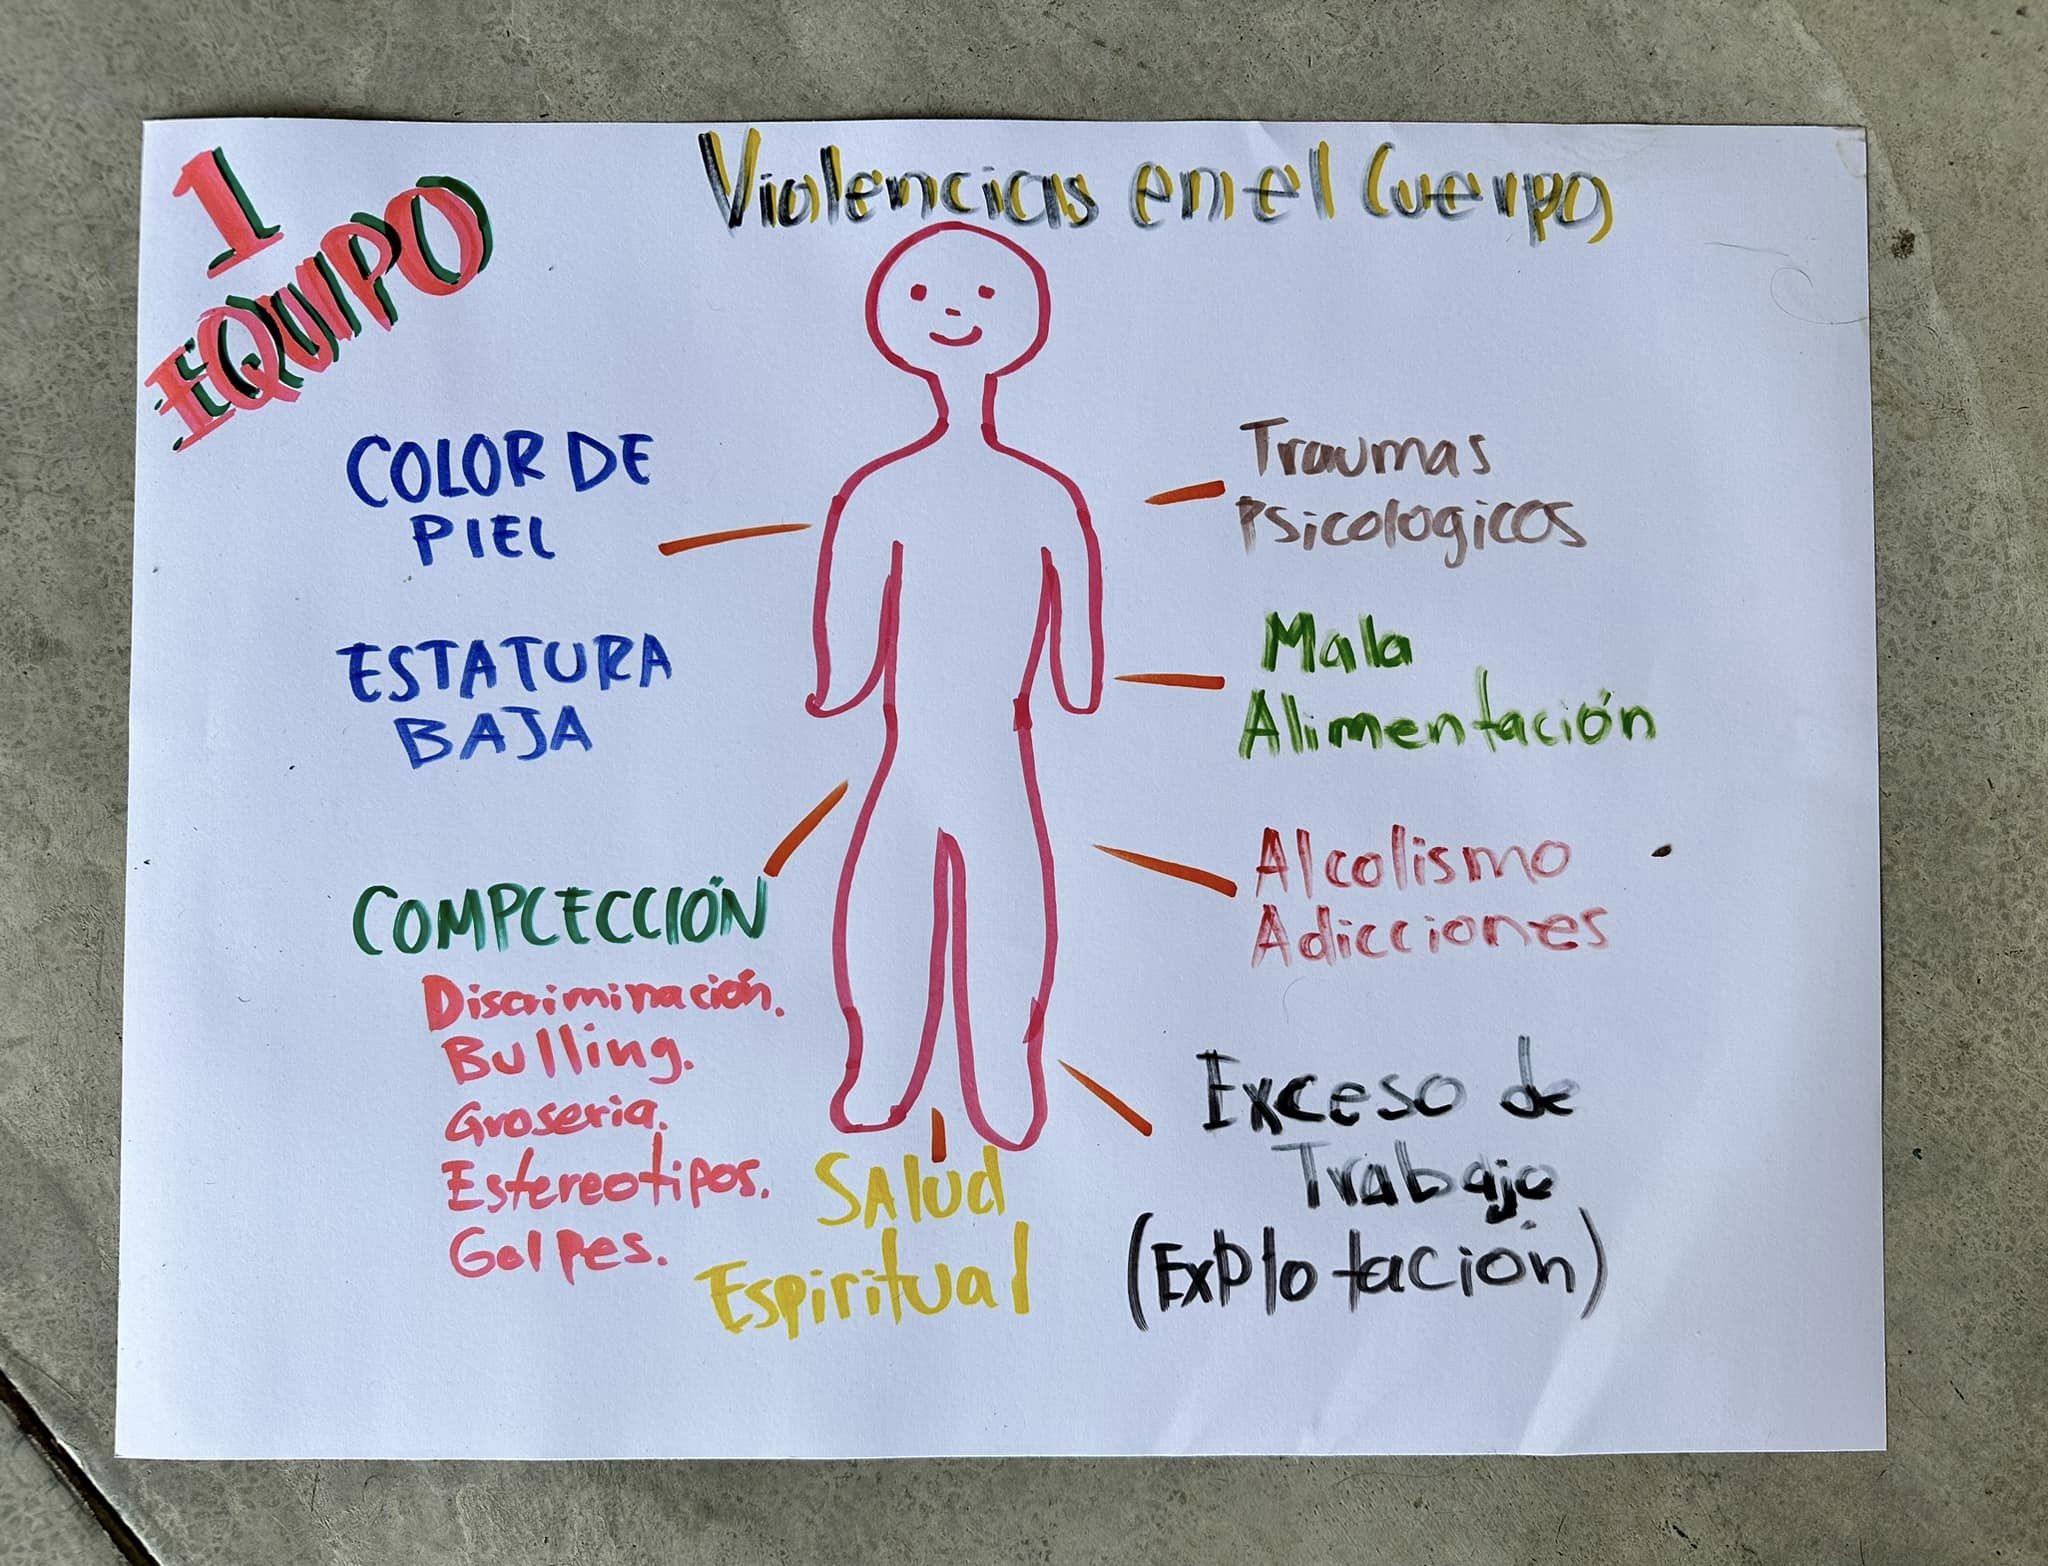 1
EQUIPO
Violencias en el Cuerpo
COLOR DE
PIEL
ESTATURA
BAJA
COMPLECCIÓN
Discriminación.
Bulling.
Groseria.
Estereotipos.
Golpes.
Salud
Espiritual
Traumas
Psicologicos
Mala
Alimentación
Alcolismo
Adicciones
Exceso de
Trabajo
(Explotación)